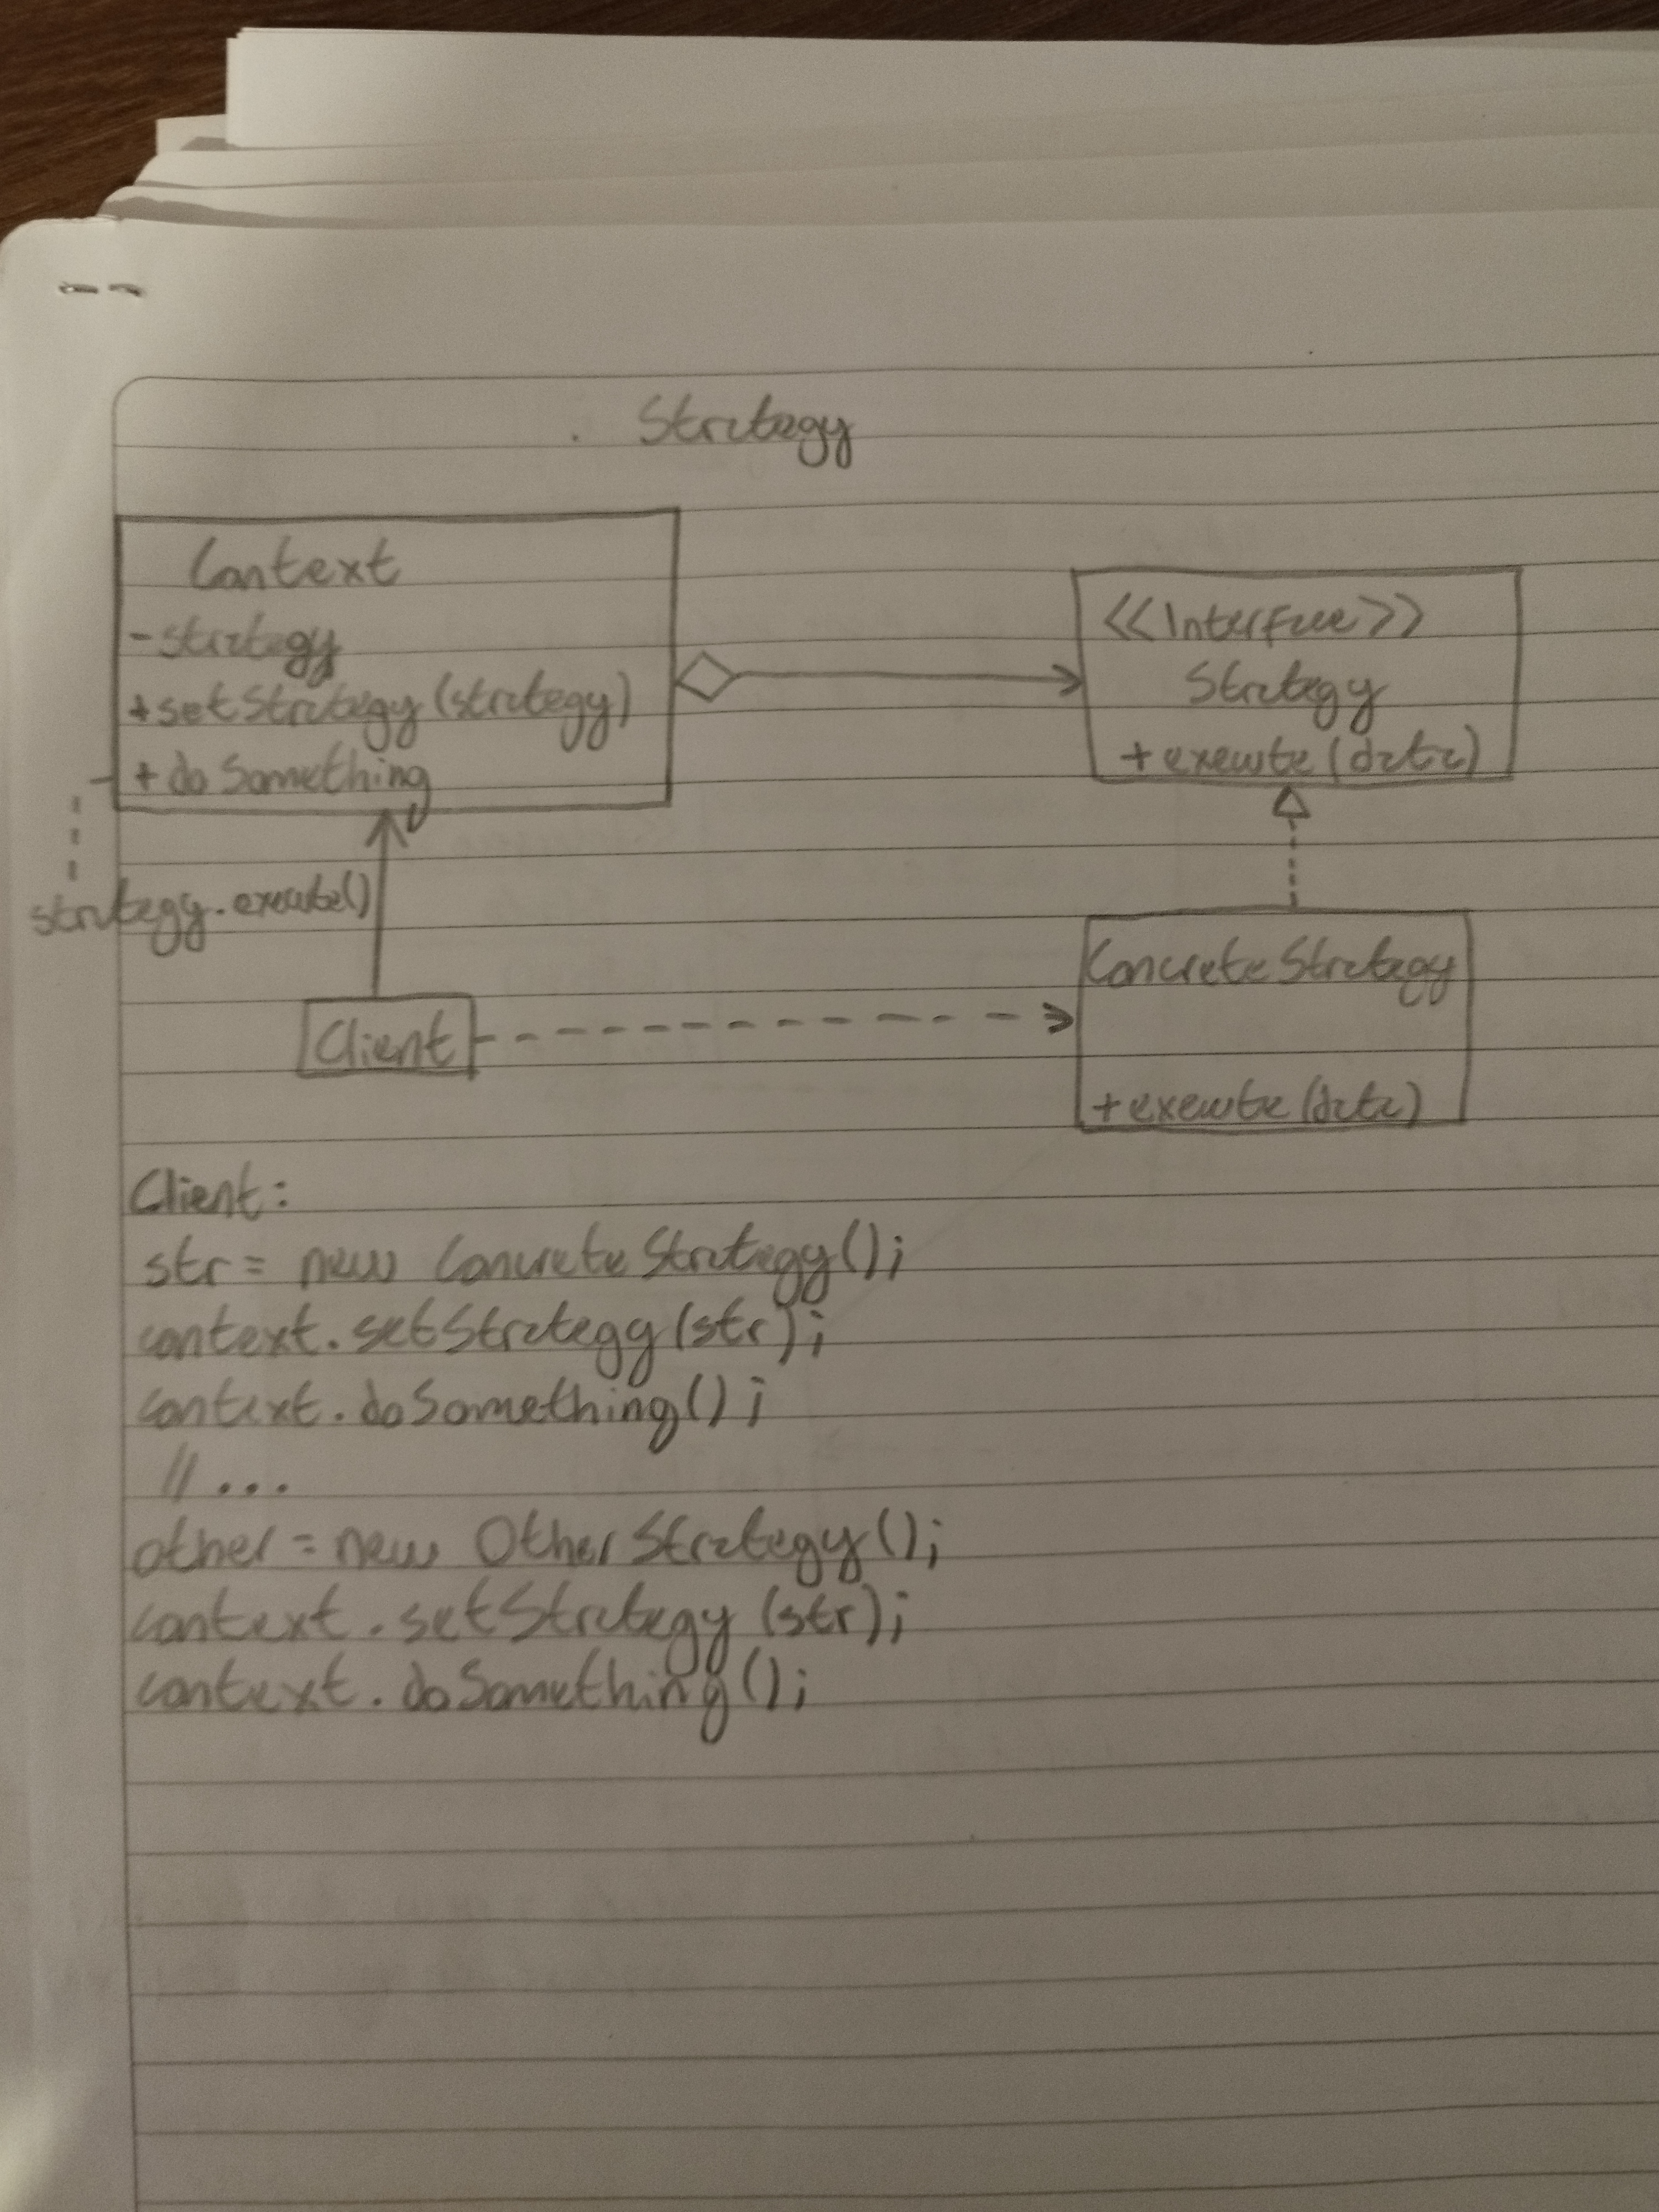 Strategy
Context
- strategy
+ setStrategy (strategy)
+ doSomething
<<Interface>>
Strategy
+ execute (data)
strategy.execute()
Client
ConcreteStrategy
+ execute (data)
Client:
str = new ConcreteStrategy();
context.setStrategy (str);
context.doSomething();
// ...
other = new OtherStrategy();
context.setStrategy (str);
context.doSomething();